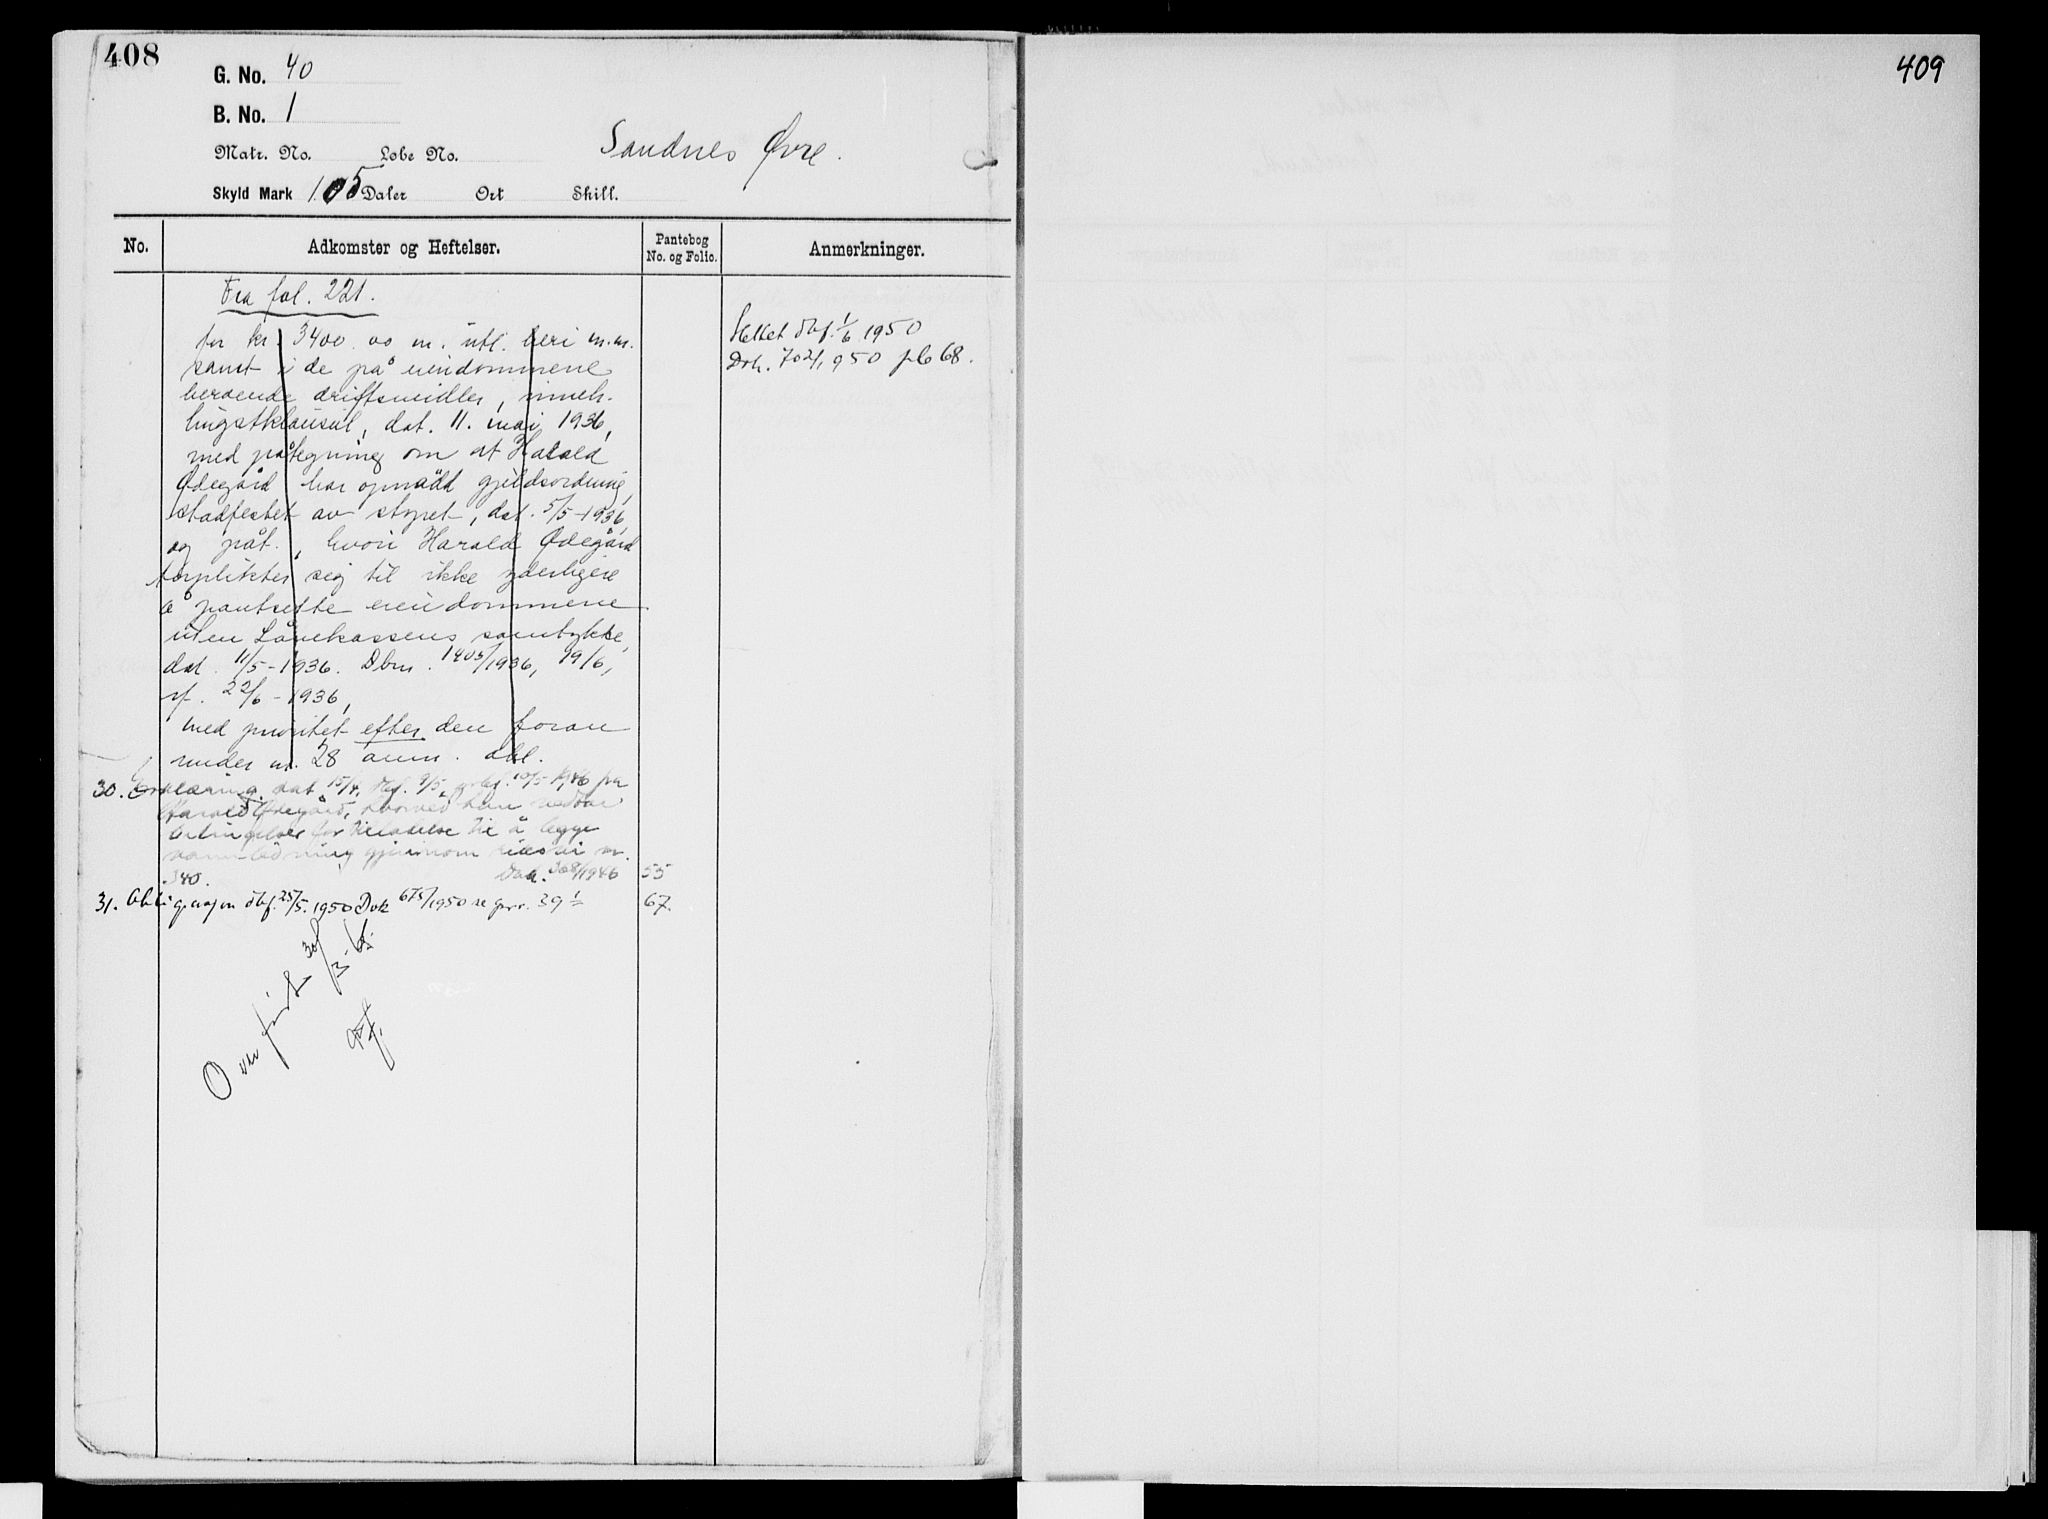 408
G. No. 40
B. No. 1
Matr. No. Løbe No.
Sandnes Øvre.
Skyld Mark 1.05 Daler Ort Skill.
No.
Adkomster og Heftelser.
Pantebog No. og Folio.
Anmerkninger.
Fra fol. 221.
for kr. 3400.00 m. utl. beri m.m.
samt i de på eiendommene
beroende driftsmidler, inneh.
hugstklausul, dat. 11. mai 1936,
med påtegning om at Harald
Ødegård har opnådd gjeldsordning,
stadfestet av styret, dat. 5/5-1936,
og påt., hvori Harald Ødegård
forplikter seg til ikke yderligere
å pantsette eiendommene
uten Lånekassens samtykke,
dat. 11/5-1936. Dbnr. 1405/1936, 19/6,
rf. 22/6-1936,
med prioritet efter den foran
under nr. 28 anm. obl.
Slettet dbf. 1/6 1950
Dok. 702/1950 pb 68.
30. Erklæring dat 15/4, dbf. 9/5, 10/5-1946 fra
Harald Ødegård, hvorved han vedtar
betingelser for tillatelse til å legge
vannledning gjennom riksvei nr.
340. Dok. 368/1946 55
31. Obligasjon dbf. 25/5. 1950 Dok 675/1950 se gnr. 39 1 67.
Overført 30/3
409